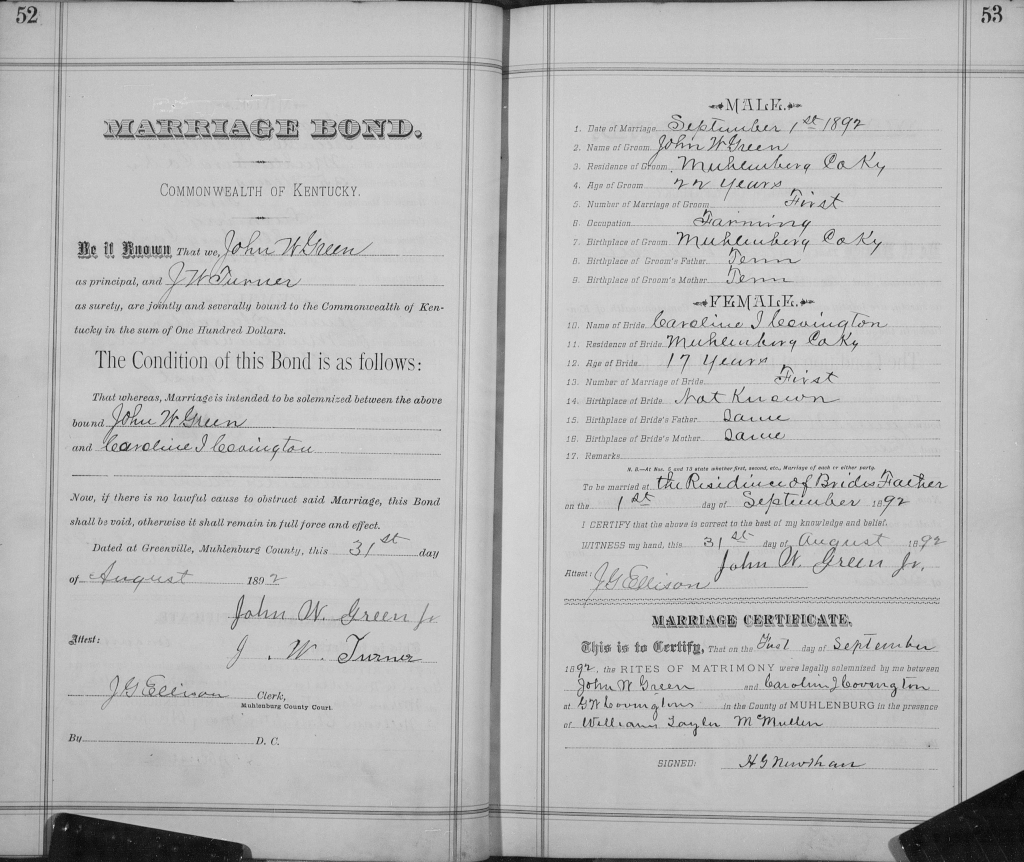 52
MARRIAGE BOND.
COMMONWEALTH OF KENTUCKY.
Be it Known That we, John W Green
as principal, and J W Turner
as surety, are jointly and severally bound to the Commonwealth of Ken-
tucky in the sum of One Hundred Dollars.
The Condition of this Bond is as follows:
That whereas, Marriage is intended to be solemnized between the above
bound John W Green
and Caroline I Covington
Now, if there is no lawful cause to obstruct said Marriage, this Bond
shall be void, otherwise it shall remain in full force and effect.
Dated at Greenville, Muhlenburg County, this 31st day
of August 1892
John W. Green Jr
Attest: J. W. Turner
J G Ellison Clerk,
Muhlenburg County Court.
By D. C.
53
MALE.
1. Date of Marriage September 1st 1892
2. Name of Groom John W Green
3. Residence of Groom Muhlenberg Co Ky
4. Age of Groom 22 Years
5. Number of Marriage of Groom First
6. Occupation Farming
7. Birthplace of Groom Muhlenberg Co Ky
8. Birthplace of Groom's Father Tenn
9. Birthplace of Groom's Mother Tenn
FEMALE.
10. Name of Bride Caroline I Covington
11. Residence of Bride Muhlenberg Co Ky
12. Age of Bride 17 Years
13. Number of Marriage of Bride First
14. Birthplace of Bride Not Known
15. Birthplace of Bride's Father Same
16. Birthplace of Bride's Mother Same
17. Remarks
N. B.—At Nos. 5 and 13 state whether first, second, etc., Marriage of each or either party.
To be married at the Residince of Brides Father
on the 1st day of September 1892
I CERTIFY that the above is correct to the best of my knowledge and belief.
WITNESS my hand, this 31st day of August 1892
John W. Green Jr.
Attest: J G Ellison
MARRIAGE CERTIFICATE.
This is to Certify, That on the First day of September
1892, the RITES OF MATRIMONY were legally solemnized by me between
John W Green and Carolin I Covington
at G W Covingtons in the County of MUHLENBURG in the presence
of William Taylor McMullen
SIGNED: H G